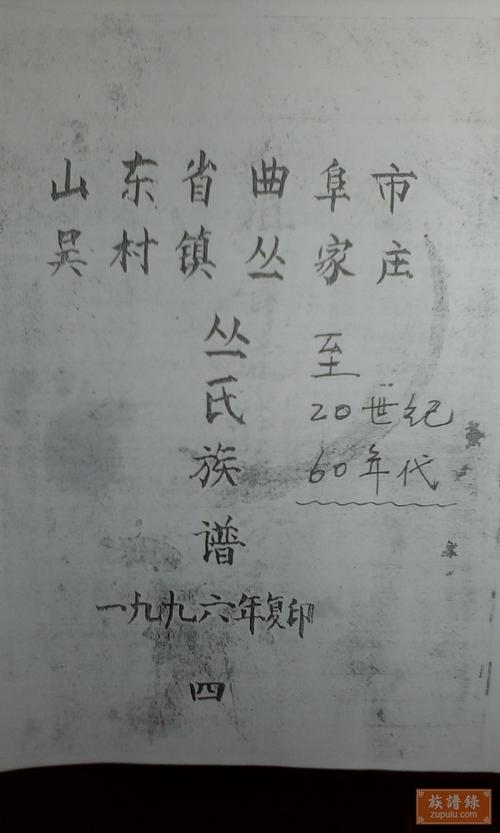 山东省曲阜市
吴村镇丛家庄
丛氏族谱
至
20世纪
60年代
一九九六年复印
四
族譜錄
zupulu.com